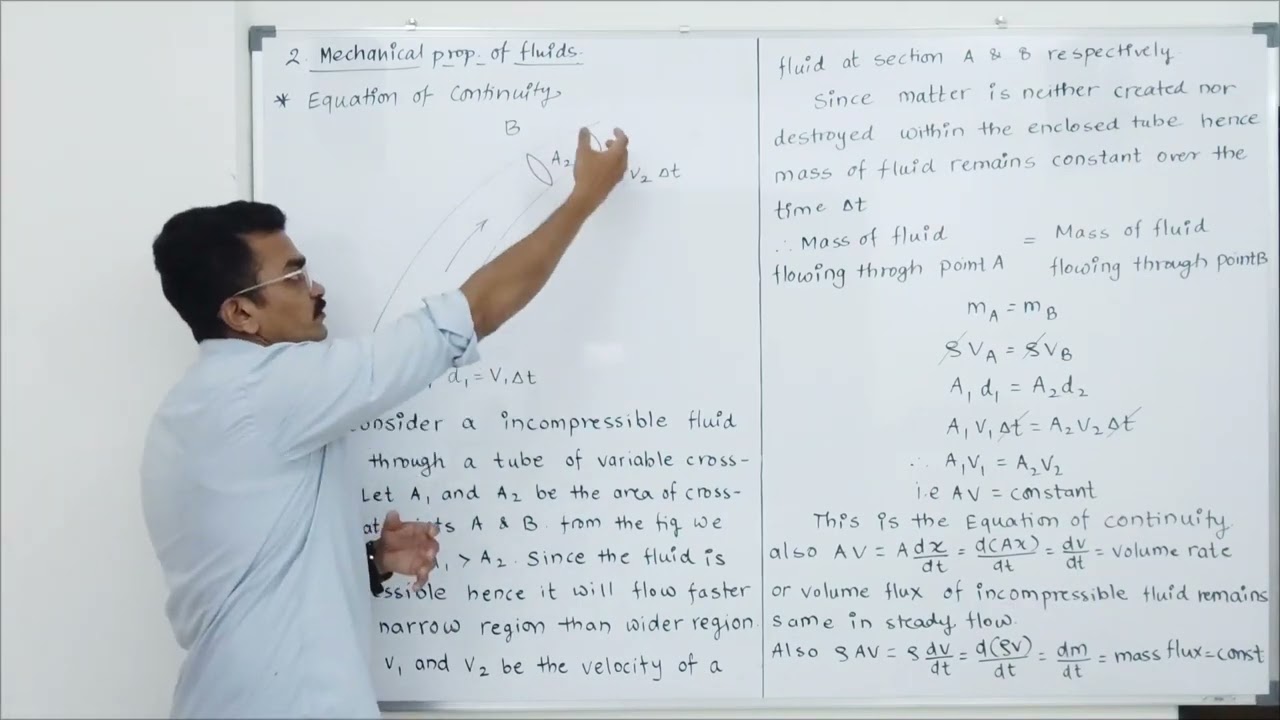 2. Mechanical prop. of fluids.
* Equation of Continuity
B
A₂
V₂ Δt
d₁ = V₁Δt
onsider a incompressible fluid
through a tube of variable cross-
Let A₁ and A₂ be the area of cross-
A & B. from the fig we
> A₂. Since the fluid is
essible hence it will flow faster
narrow region than wider region.
V₁ and V₂ be the velocity of a
fluid at section A & B respectively.
Since matter is neither created nor
destroyed within the enclosed tube hence
mass of fluid remains constant over the
time Δt
∴ Mass of fluid flowing throgh point A = Mass of fluid flowing through point B
m_A = m_B
ρV_A = ρV_B
A₁ d₁ = A₂d₂
A₁ V₁ Δt = A₂V₂ Δt
∴ A₁V₁ = A₂V₂
i.e AV = constant
This is the Equation of continuity.
also AV = A dx/dt = d(Ax)/dt = dv/dt = volume rate
or volume flux of incompressible fluid remains
same in steady flow.
Also ρAV = ρ dv/dt = d(ρv)/dt = dm/dt = mass flux = const